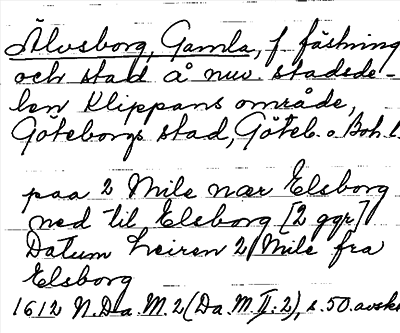 Älvsborg, Gamla, f. fästning
och stad å nuv. stadsde-
len Klippans område,
Göteborgs stad, Göteb. o. Boh. l.
paa 2 Mile nær Elsborg
ned til Elsborg [2 ggr]
Datum Leiren 2 Mile fra
Elsborg
1612 N.Da.M. 2 (Da.M.II:2), s. 50. avskr